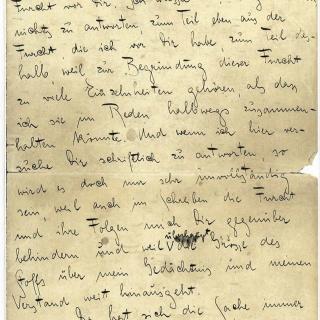 Furcht vor Dir. Ich wusste
nichts zu antworten zum Teil eben aus der
Furcht die ich vor Dir habe zum Teil des-
halb weil zur Begründung dieser Furcht
zu viele Einzelheiten gehören, als dass
ich sie im Reden halbwegs zusammen-
halten könnte. Und wenn ich hier ver-
suche Dir schriftlich zu antworten, so
wird es doch nur sehr unvollständig
sein, weil auch im Schreiben die Furcht
und ihre Folgen mich Dir gegenüber
behindern und weil die Grösse des
Stoffs über mein Gedächtnis und meinen
Verstand weit hinausgeht.
Dir hat sich die Sache immer